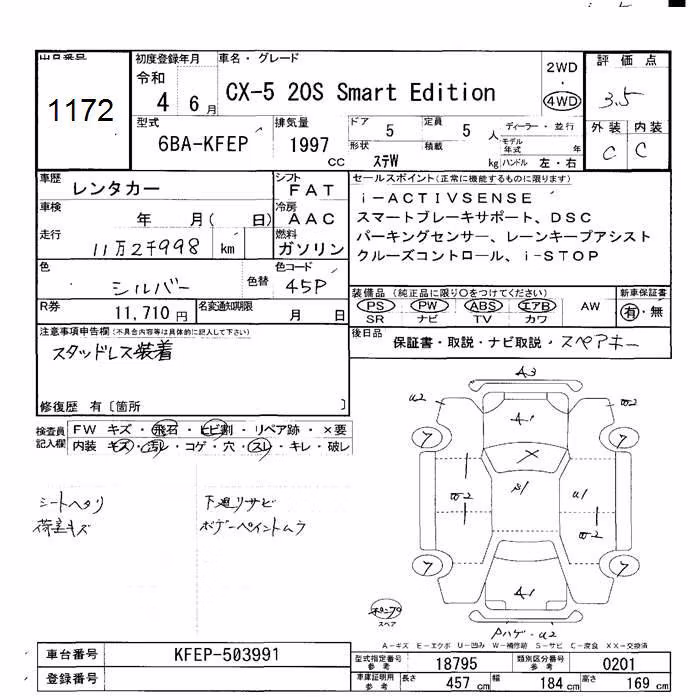 出品番号
1172
初度登録年月
令和
4 6月
車名・グレード
CX-5 20S Smart Edition
2WD
・
4WD
評価点
3.5
外装 内装
C C
型式
6BA-KFEP
排気量
1997
CC
ドア
5
定員
5
人
形状
ステW
積載
kg
ディーラー・並行
モデル年式
年
ハンドル 左・右
車歴
レンタカー
シフト
FAT
車検
年 月( 日)
冷房
AAC
走行
11万2千998
km
燃料
ガソリン
色
シルバー
色替
色コード
45P
R券
11,710円
名変通知期限
月 日
セールスポイント(正常に機能するものに限ります)
i-ACTIVSENSE
スマートブレーキサポート、DSC
パーキングセンサー、レーンキープアシスト
クルーズコントロール、i-STOP
装備品(純正品に限り○をつけてください)
PS PW ABS エアB AW
SR ナビ TV カワ
新車保証書
有・無
後日品
保証書・取説・ナビ取説・スペアキー
注意事項申告欄(不具合内容等は具体的に記入して下さい)
スタッドレス装着
修復歴 有〔箇所 〕
検査員記入欄
FW キズ・飛石・ヒビ割・リペア跡・×要
内装 キズ・汚レ・コゲ・穴・スレ・キレ・破レ
シートヘタリ
荷室キズ
下廻りサビ
ボデーペイントムラ
A3
u2
A1
7
7
X
u1
7
7
A1
Pハゲ・u2
スペア
A-キズ E-エクボ U-凹み W-補修跡 S-サビ C-腐食 XX-交換済
車台番号
KFEP-503991
登録番号
型式指定番号
参考
18795
類別区分番号
参考
0201
車庫証明用
参考
長さ
457 cm
幅
184 cm
高さ
169 cm